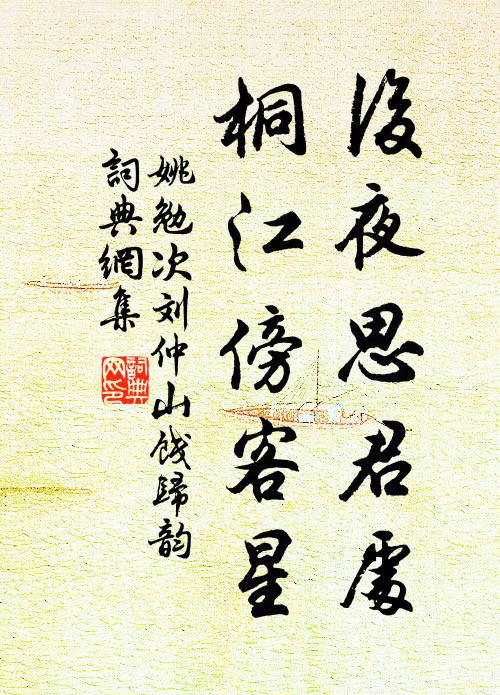 後夜思君處
桐江傍客星
姚勉次刘仲山餞歸韵
詞典網集
詞典网印